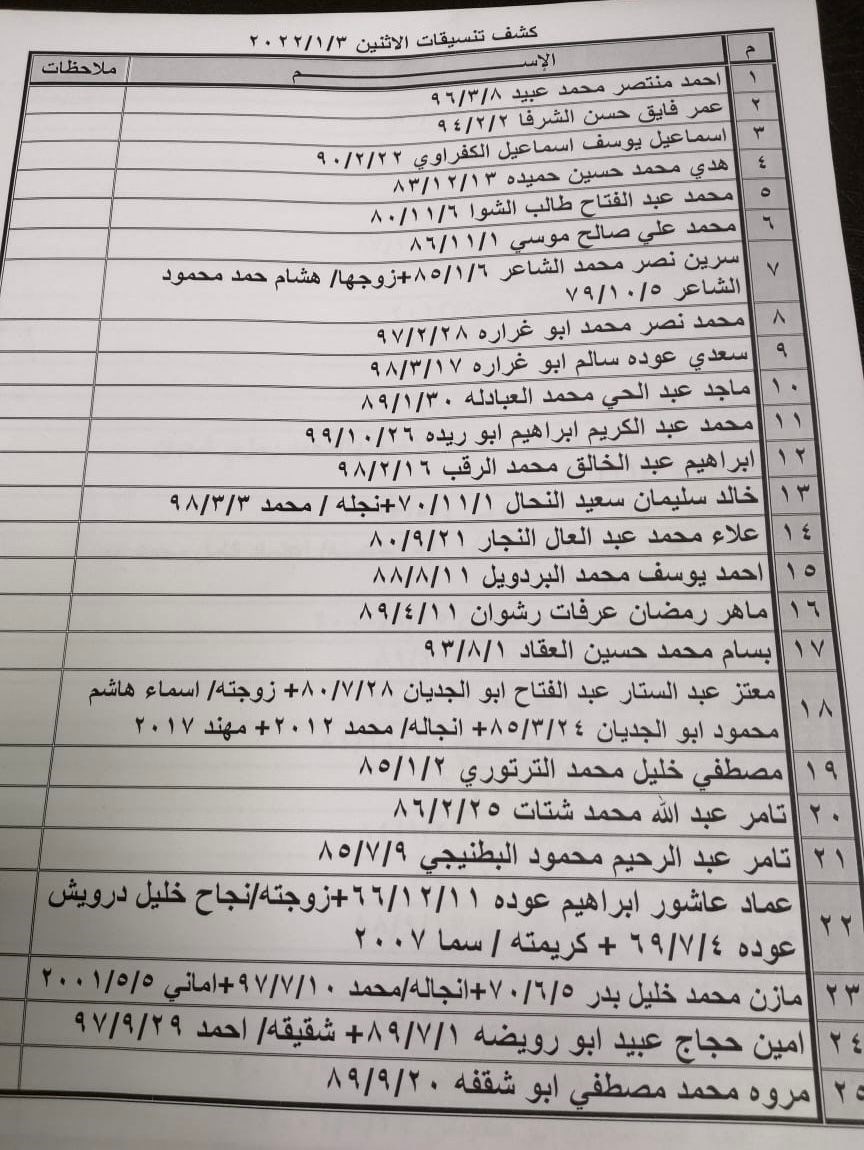 كشف تنسيقات الاثنين ٢٠٢٢/١/٣
م الإســـــم ملاحظات
١ احمد منتصر محمد عبيد ٩٦/٣/٨
٢ عمر فايق حسن الشرفا ٩٤/٢/٢
٣ اسماعيل يوسف اسماعيل الكفراوي ٩٠/٢/٢٢
٤ هدي محمد حسين حميده ٨٣/١٢/١٣
٥ محمد عبد الفتاح طالب الشوا ٨٠/١١/٦
٦ محمد علي صالح موسي ٨٦/١١/١
٧ سرين نصر محمد الشاعر ٨٥/١/٦+زوجها/ هشام حمد محمود
الشاعر ٧٩/١٠/٥
٨ محمد نصر محمد ابو غراره ٩٧/٢/٢٨
٩ سعدي عوده سالم ابو غراره ٩٨/٣/١٧
١٠ ماجد عبد الحي محمد العبادله ٨٩/١/٣٠
١١ محمد عبد الكريم ابراهيم ابو ريده ٩٩/١٠/٢٦
١٢ ابراهيم عبد الخالق محمد الرقب ٩٨/٢/١٦
١٣ خالد سليمان سعيد النحال ٧٠/١١/١+نجله / محمد ٩٨/٣/٣
١٤ علاء محمد عبد العال النجار ٨٠/٩/٢١
١٥ احمد يوسف محمد البردويل ٨٨/٨/١١
١٦ ماهر رمضان عرفات رشوان ٨٩/٤/١١
١٧ بسام محمد حسين العقاد ٩٣/٨/١
١٨ معتز عبد الستار عبد الفتاح ابو الجديان ٨٠/٧/٢٨+ زوجته/ اسماء هاشم
محمود ابو الجديان ٨٥/٣/٢٤+ انجاله/ محمد ٢٠١٢+ مهند ٢٠١٧
١٩ مصطفي خليل محمد الترتوري ٨٥/١/٢
٢٠ تامر عبد الله محمد شتات ٨٦/٢/٢٥
٢١ تامر عبد الرحيم محمود البطنيجي ٨٥/٧/٩
٢٢ عماد عاشور ابراهيم عوده ٦٦/١٢/١١+زوجته/نجاح خليل درويش
عوده ٦٩/٧/٤ + كريمته / سما ٢٠٠٧
٢٣ مازن محمد خليل بدر ٧٠/٦/٥+انجاله/محمد ٩٧/٧/١٠+اماني ٢٠٠١/٥/٥
٢٤ امين حجاج عبيد ابو رويضه ٨٩/٧/١+ شقيقه/ احمد ٩٧/٩/٢٩
٢٥ مروه محمد مصطفي ابو شقفه ٨٩/٩/٢٠